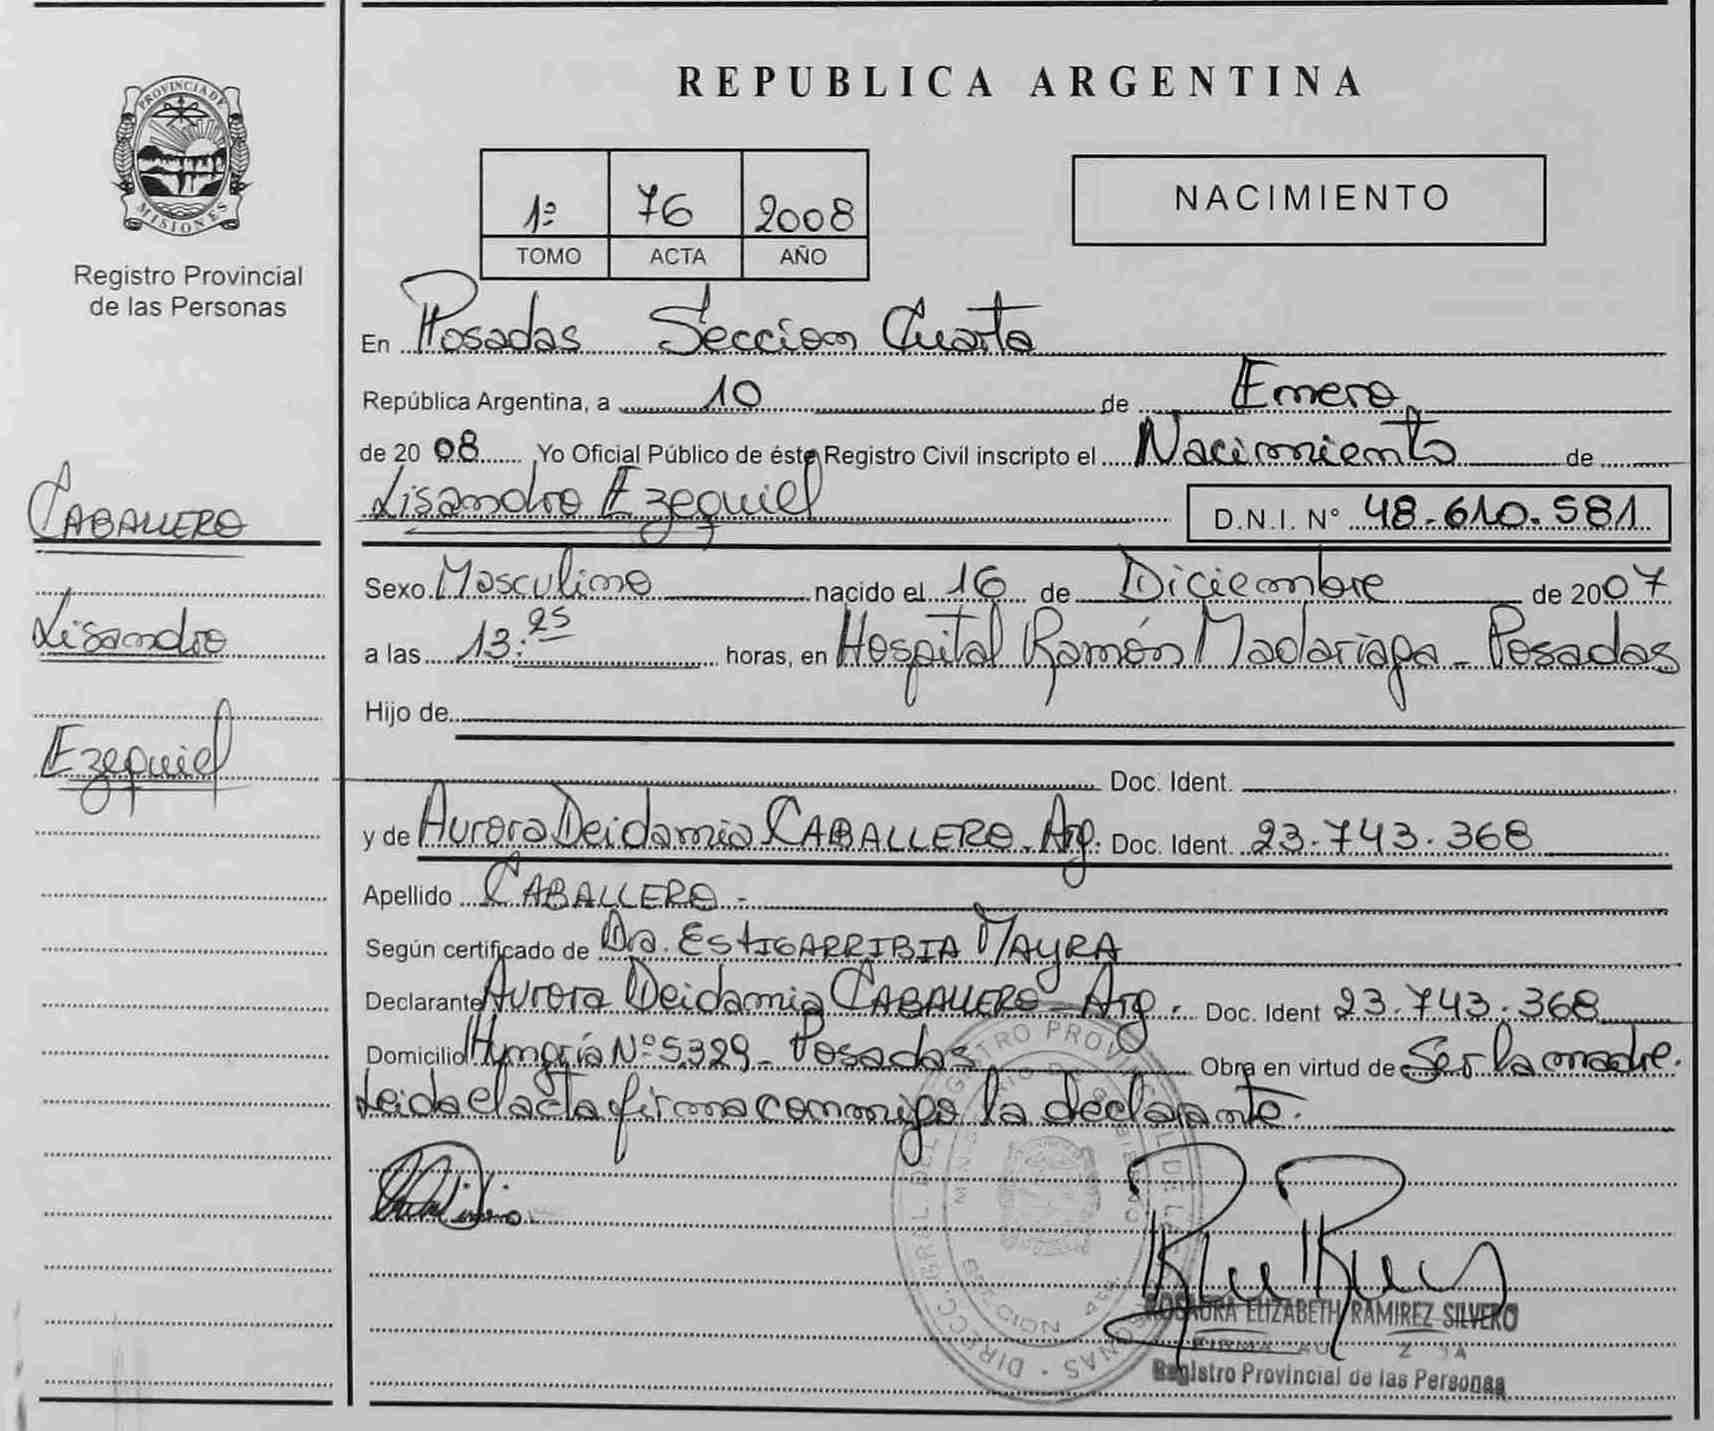 REPUBLICA ARGENTINA
PROVINCIA DE
MISIONES
Registro Provincial
de las Personas
1º 76 2008
TOMO ACTA AÑO
NACIMIENTO
En Posadas Seccion Cuarta
República Argentina, a 10 de Enero
de 20 08 Yo Oficial Público de éste Registro Civil inscripto el Nacimiento de
CABALLERO
Lisandro
Ezequiel
Lisandro Ezequiel D.N.I. N° 48.610.581
Sexo Masculino nacido el 16 de Diciembre de 2007
a las 13:25 horas, en Hospital Ramón Madariaga - Posadas
Hijo de
Doc. Ident.
y de Aurora Deidamia CABALLERO - Arg. Doc. Ident. 23.743.368
Apellido CABALLERO -
Según certificado de Dra. ESTIGARRIBIA MAYRA
Declarante Aurora Deidamia CABALLERO - Arg. Doc. Ident 23.743.368
Domicilio Hungría Nº 5329 - Posadas Obra en virtud de Ser la madre.
Leida el acta firma conmigo la declarante.
ROSAURA ELIZABETH RAMIREZ SILVERO
FIRMA
Registro Provincial de las Personas